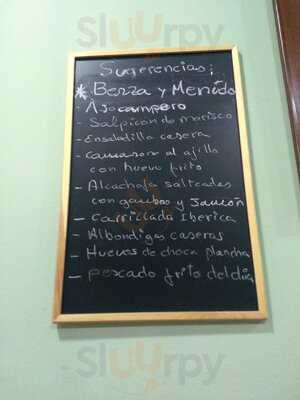 Sluurpy
Sugerencias;
* Berza y Menudo
- Ajocampero
- Salpicon de marisco
- Ensaladilla casera
- camaron al ajillo
con huevo frito
- Alcachofa salteadas
con gambas y Jamón
- Carrillada Iberica
- Albondigas caseras
- Huevos de choco plancha
- pescado frito del dia
Sluurpy